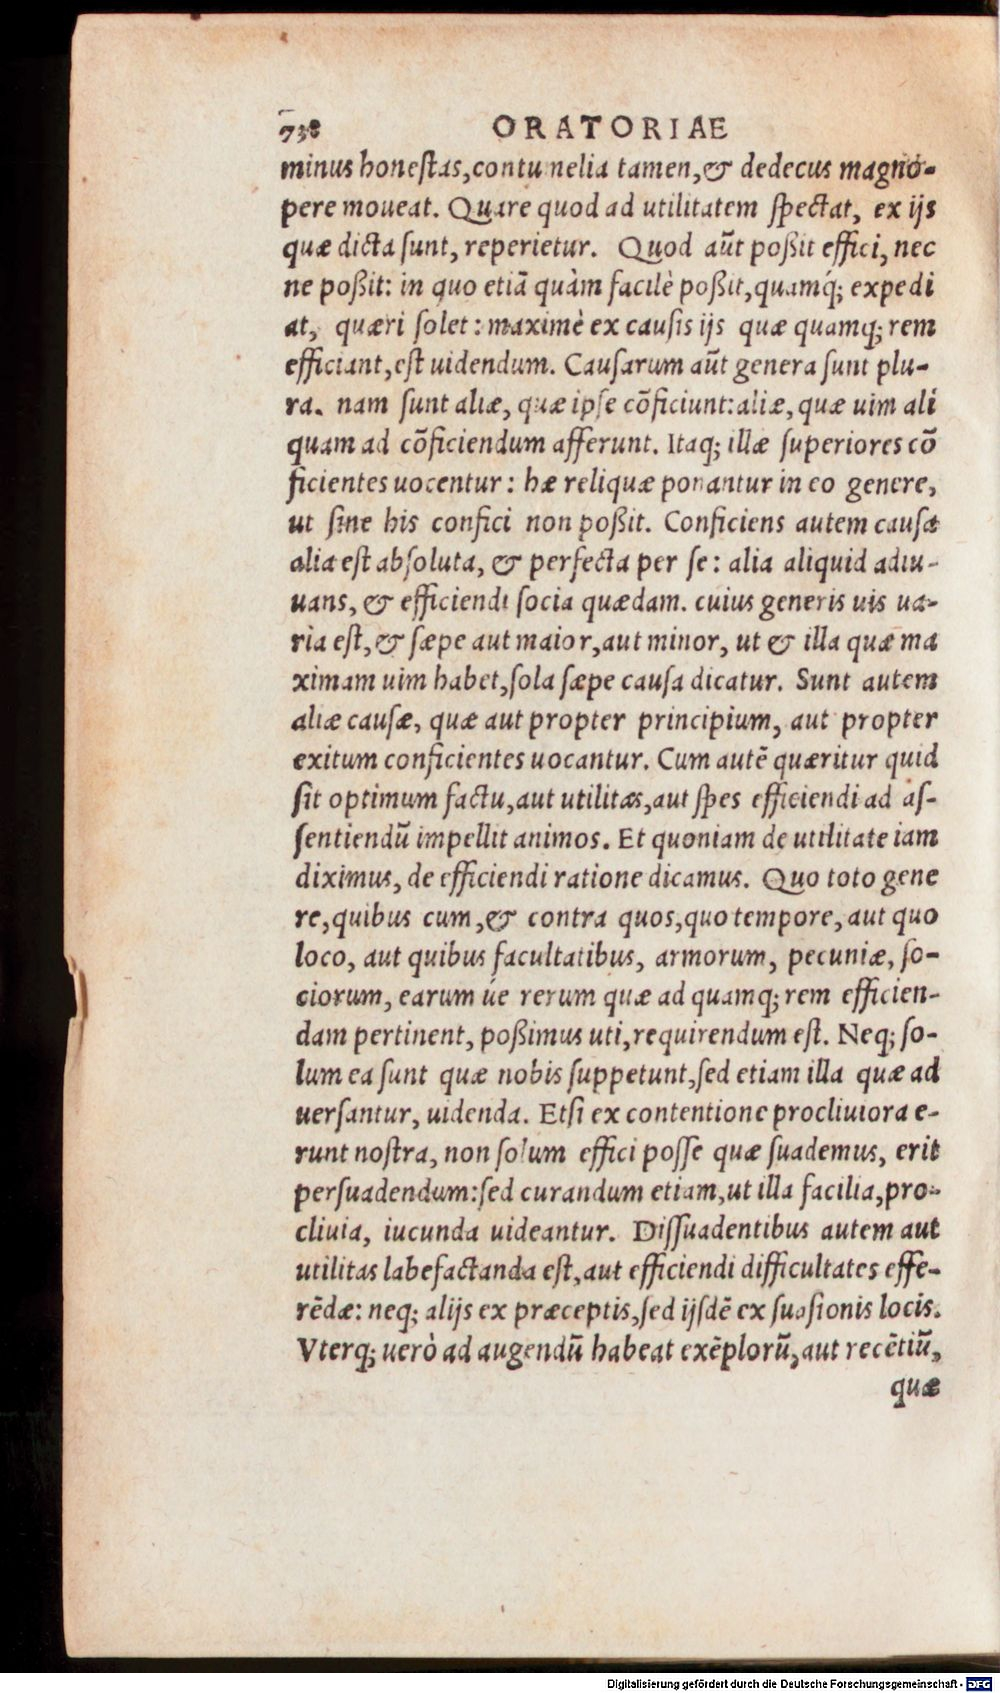 738 ORATORIAE
minus honestas, contumelia tamen, & dedecus magno-
pere moueat. Quare quod ad utilitatem spectat, ex ijs
quæ dicta sunt, reperietur. Quod aũt poßit effici, nec
ne poßit: in quo etiã quàm facilè poßit, quamq́; expedi
at, quæri solet: maximè ex causis ijs quæ quamq; rem
efficiant, est uidendum. Causarum aũt genera sunt plu-
ra. nam sunt aliæ, quæ ipse cõficiunt: aliæ, quæ uim ali
quam ad cõficiendum afferunt. Itaq; illæ superiores cõ
ficientes uocentur: hæ reliquæ ponantur in eo genere,
ut sine his confici non poßit. Conficiens autem causa
alia est absoluta, & perfecta per se: alia aliquid adiu-
uans, & efficiendi socia quædam. cuius generis uis ua-
ria est, & sæpe aut maior, aut minor, ut & illa quæ ma
ximam uim habet, sola sæpe causa dicatur. Sunt autem
aliæ causæ, quæ aut propter principium, aut propter
exitum conficientes uocantur. Cum autẽ quæritur quid
sit optimum factu, aut utilitas, aut spes efficiendi ad as-
sentiendũ impellit animos. Et quoniam de utilitate iam
diximus, de efficiendi ratione dicamus. Quo toto gene
re, quibus cum, & contra quos, quo tempore, aut quo
loco, aut quibus facultatibus, armorum, pecuniæ, so-
ciorum, earum úe rerum quæ ad quamq; rem efficien-
dam pertinent, poßimus uti, requirendum est. Neq; so-
lum ea sunt quæ nobis suppetunt, sed etiam illa quæ ad
uersantur, uidenda. Etsi ex contentione procliuiora e-
runt nostra, non solum effici posse quæ suademus, erit
persuadendum: sed curandum etiam, ut illa facilia, pro-
cliuia, iucunda uideantur. Dissuadentibus autem aut
utilitas labefactanda est, aut efficiendi difficultates effe-
rẽdæ: neq; alijs ex præceptis, sed ijsdẽ ex suasionis locis.
Vterq; uerò ad augendũ habeat exẽplorũ, aut recẽtiũ,
quæ
Digitalisierung gefördert durch die Deutsche Forschungsgemeinschaft - DFG